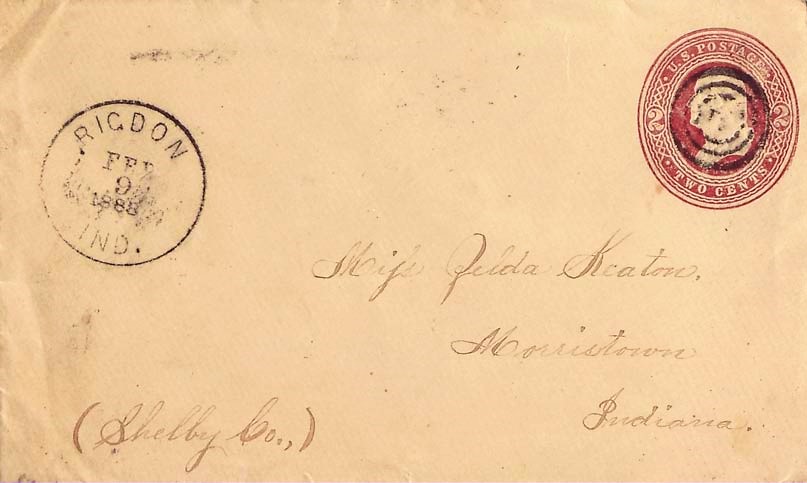 U.S. POSTAGE
2 2
TWO CENTS
RIGDON
FEB
9
1888
IND.
Miss Zelda Keaton.
Morristown
Indiana.
(Shelby Co.,)